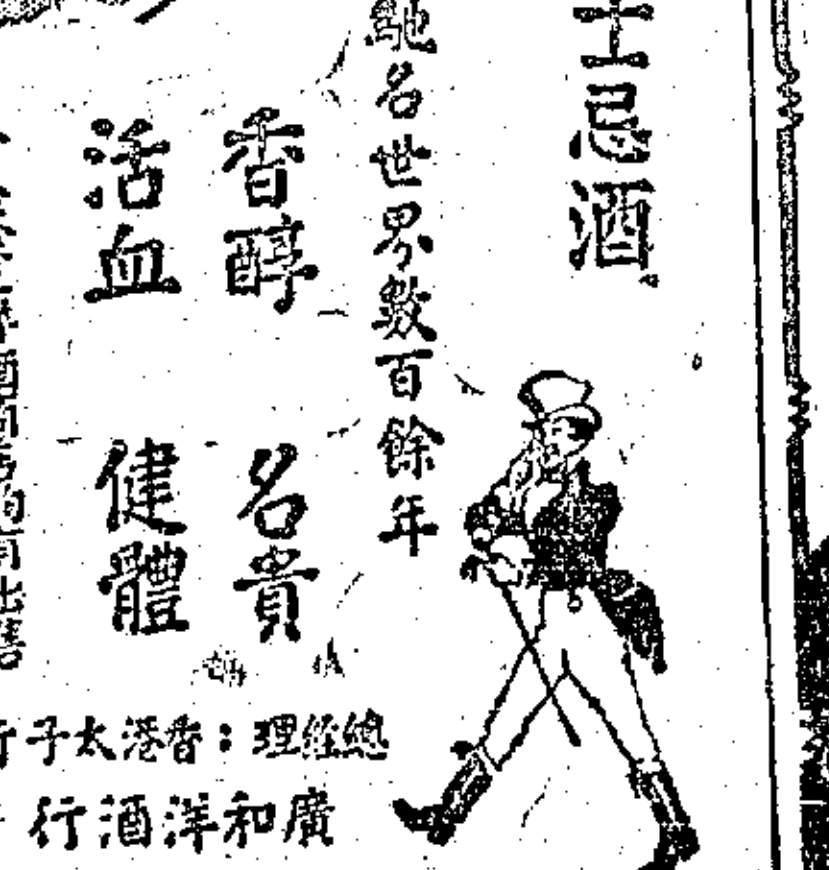 士忌酒
馳名世界數百餘年
香醇 名貴
活血 健體
酒
均有出售
總經理：香港太子行
廣和洋酒行